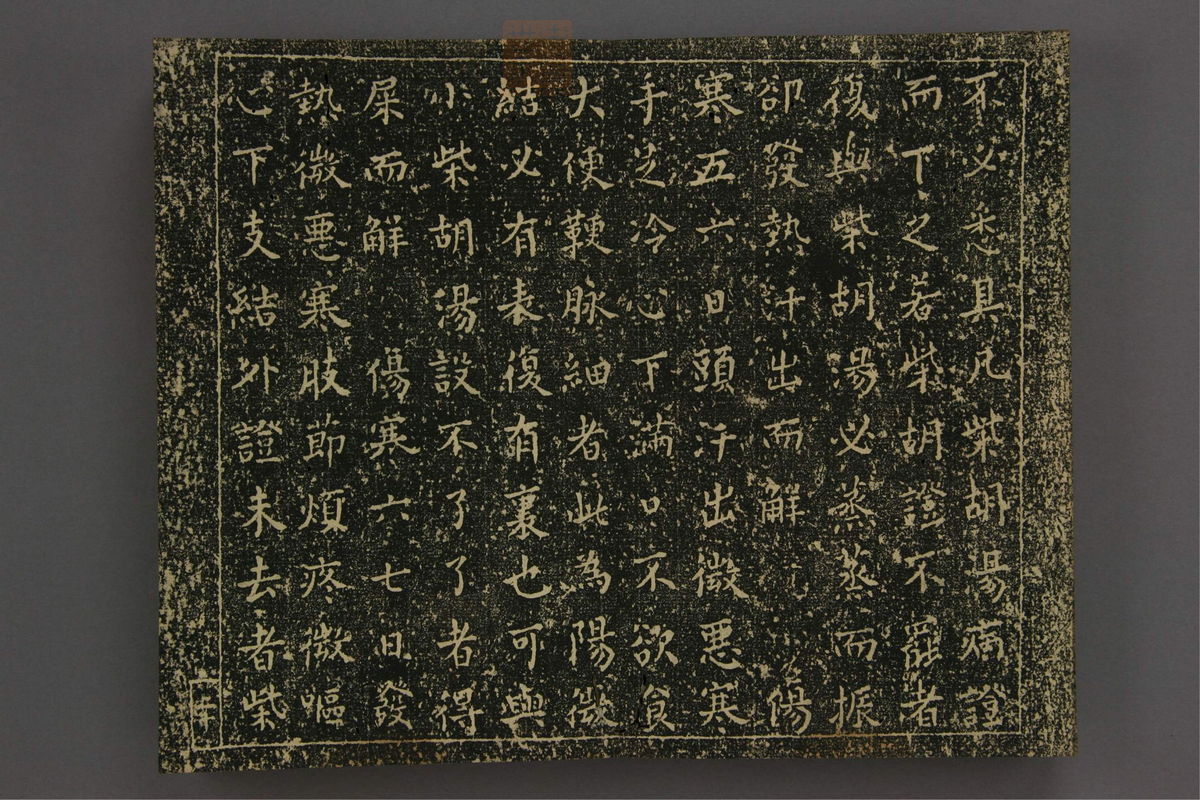 不必悉具凡柴胡湯病證
而下之若柴胡證不罷者
復與柴胡湯必蒸蒸而振
卻發熱汗出而解　傷
寒五六日頭汗出微悪寒
手足冷心下滿口不欲食
大便鞕脉細者此為陽微
結必有表復有裏也可與
小柴胡湯設不了了者得
屎而解　傷寒六七日發
熱微悪寒肢節煩疼微嘔
心下支結外證未去者柴